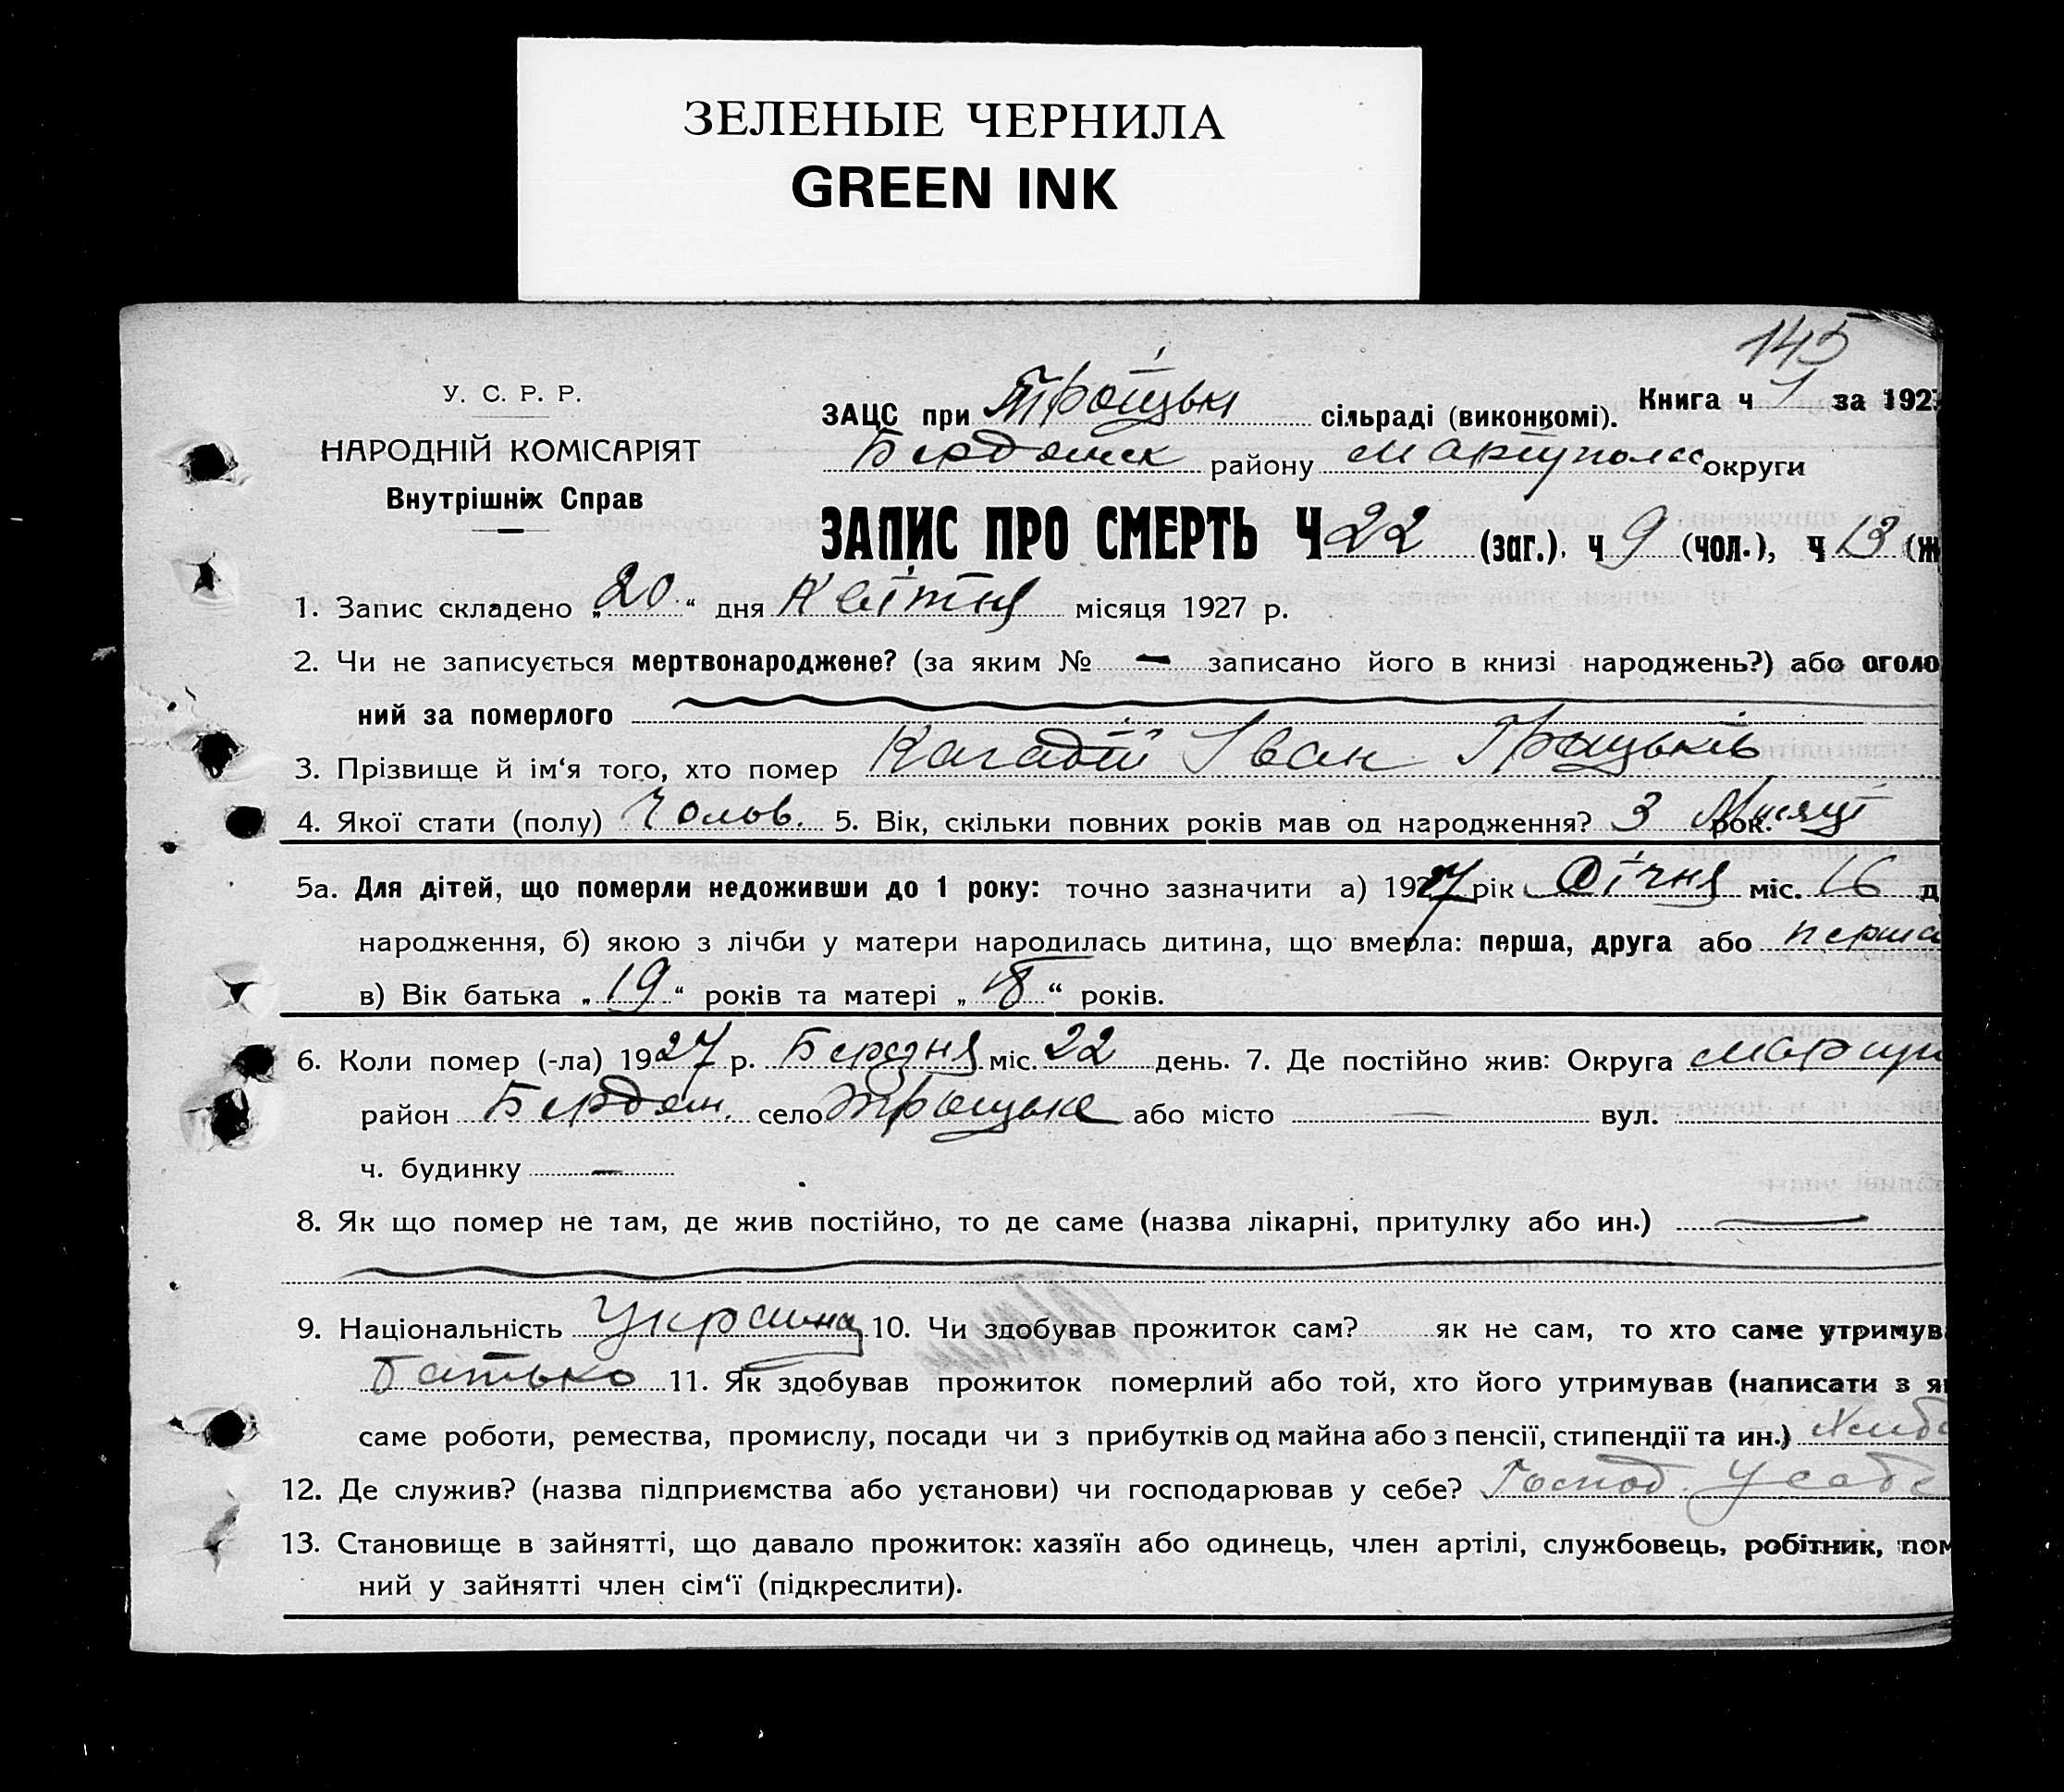 ЗЕЛЕНЫЕ ЧЕРНИЛА
GREEN INK
145
У. С. Р. Р.
НАРОДНІЙ КОМІСАРІЯТ
Внутрішніх Справ
ЗАЦС при Троїцькі сільраді (виконкомі). Книга ч 1 за 192
Бердянск району Маріупольс округи
ЗАПИС ПРО СМЕРТЬ Ч 22 (заг.). ч 9 (чол.), ч 13 (ж
1. Запис складено „20“ дня Квітня місяця 1927 р.
2. Чи не записується мертвонароджене? (за яким № — записано його в книзі народжень?) або оголо
ний за померлого
3. Прізвище й ім‘я того, хто помер Іван
4. Якої стати (полу) Чолов. 5. Вік, скільки повних років мав од народження? 3 рок. Місяці
5а. Для дітей, що померли недоживши до 1 року: точно зазначити а) 1927 рік Січня міс. 16 д
народження, б) якою з лічби у матери народилась дитина, що вмерла: перша, друга або перша
в) Вік батька „19“ років та матері „18“ років.
6. Коли помер (-ла) 1927 р. Березня міс. 22 день. 7. Де постійно жив: Округа Маріуп
район Бердян. село Троїцьке або місто — вул.
ч. будинку —
8. Як що помер не там, де жив постійно, то де саме (назва лікарні, притулку або ин.) —
9. Національність 10. Чи здобував прожиток сам? як не сам, то хто саме утримув
Батько 11. Як здобував прожиток померлий або той, хто його утримував (написати з я
саме роботи, ремества, промислу, посади чи з прибутків од майна або з пенсії, стипендії та ин.) Хліб
12. Де служив? (назва підприємства або установи) чи господарював у себе? Господ. у себе
13. Становище в зайнятті, що давало прожиток: хазяїн або одинець, член артілі, службовець, робітник, пом
ний у зайнятті член сім‘ї (підкреслити).